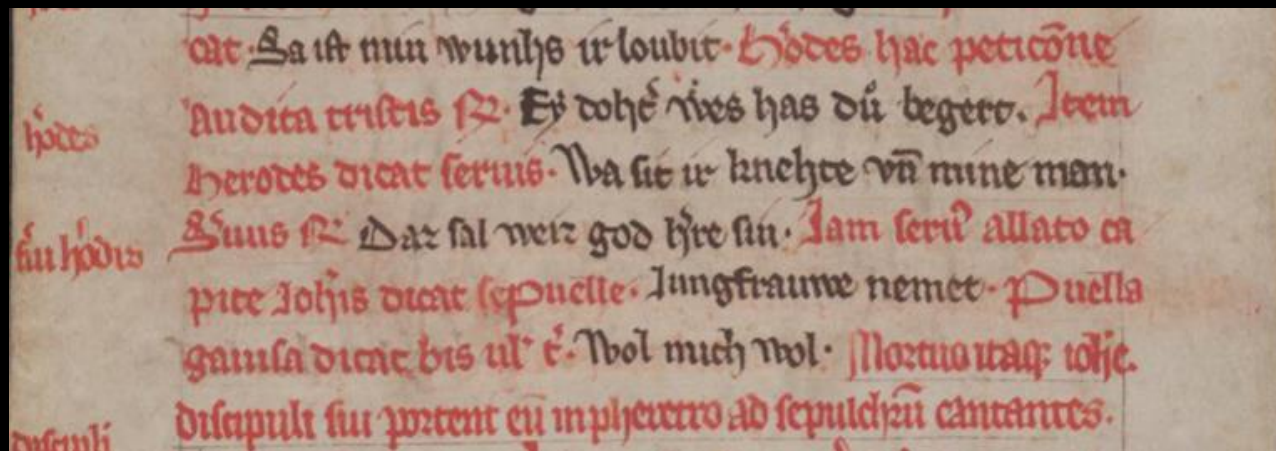 cat. Sa ist min wunhs ir loubit. H'odes hac peticōne
hodes
Audita tristis R. Ey toht' wes has dů begert. Item
Herodes dicat seruis. Wa sit ir knehte vn̄ mine man.
s'ui h'odis
S'uus R Daz sal weiz god h're sin. Iam seru' allato ca
pite Ioh'is dicat se Puelle. Iungfrauwe nemet. Puella
gauisa dicat bis ul' t'. Wol mich wol. Mortuo itaq; ioh'e.
discipuli
discipuli sui portent eū in pheretro ad sepulchrū cantantes.